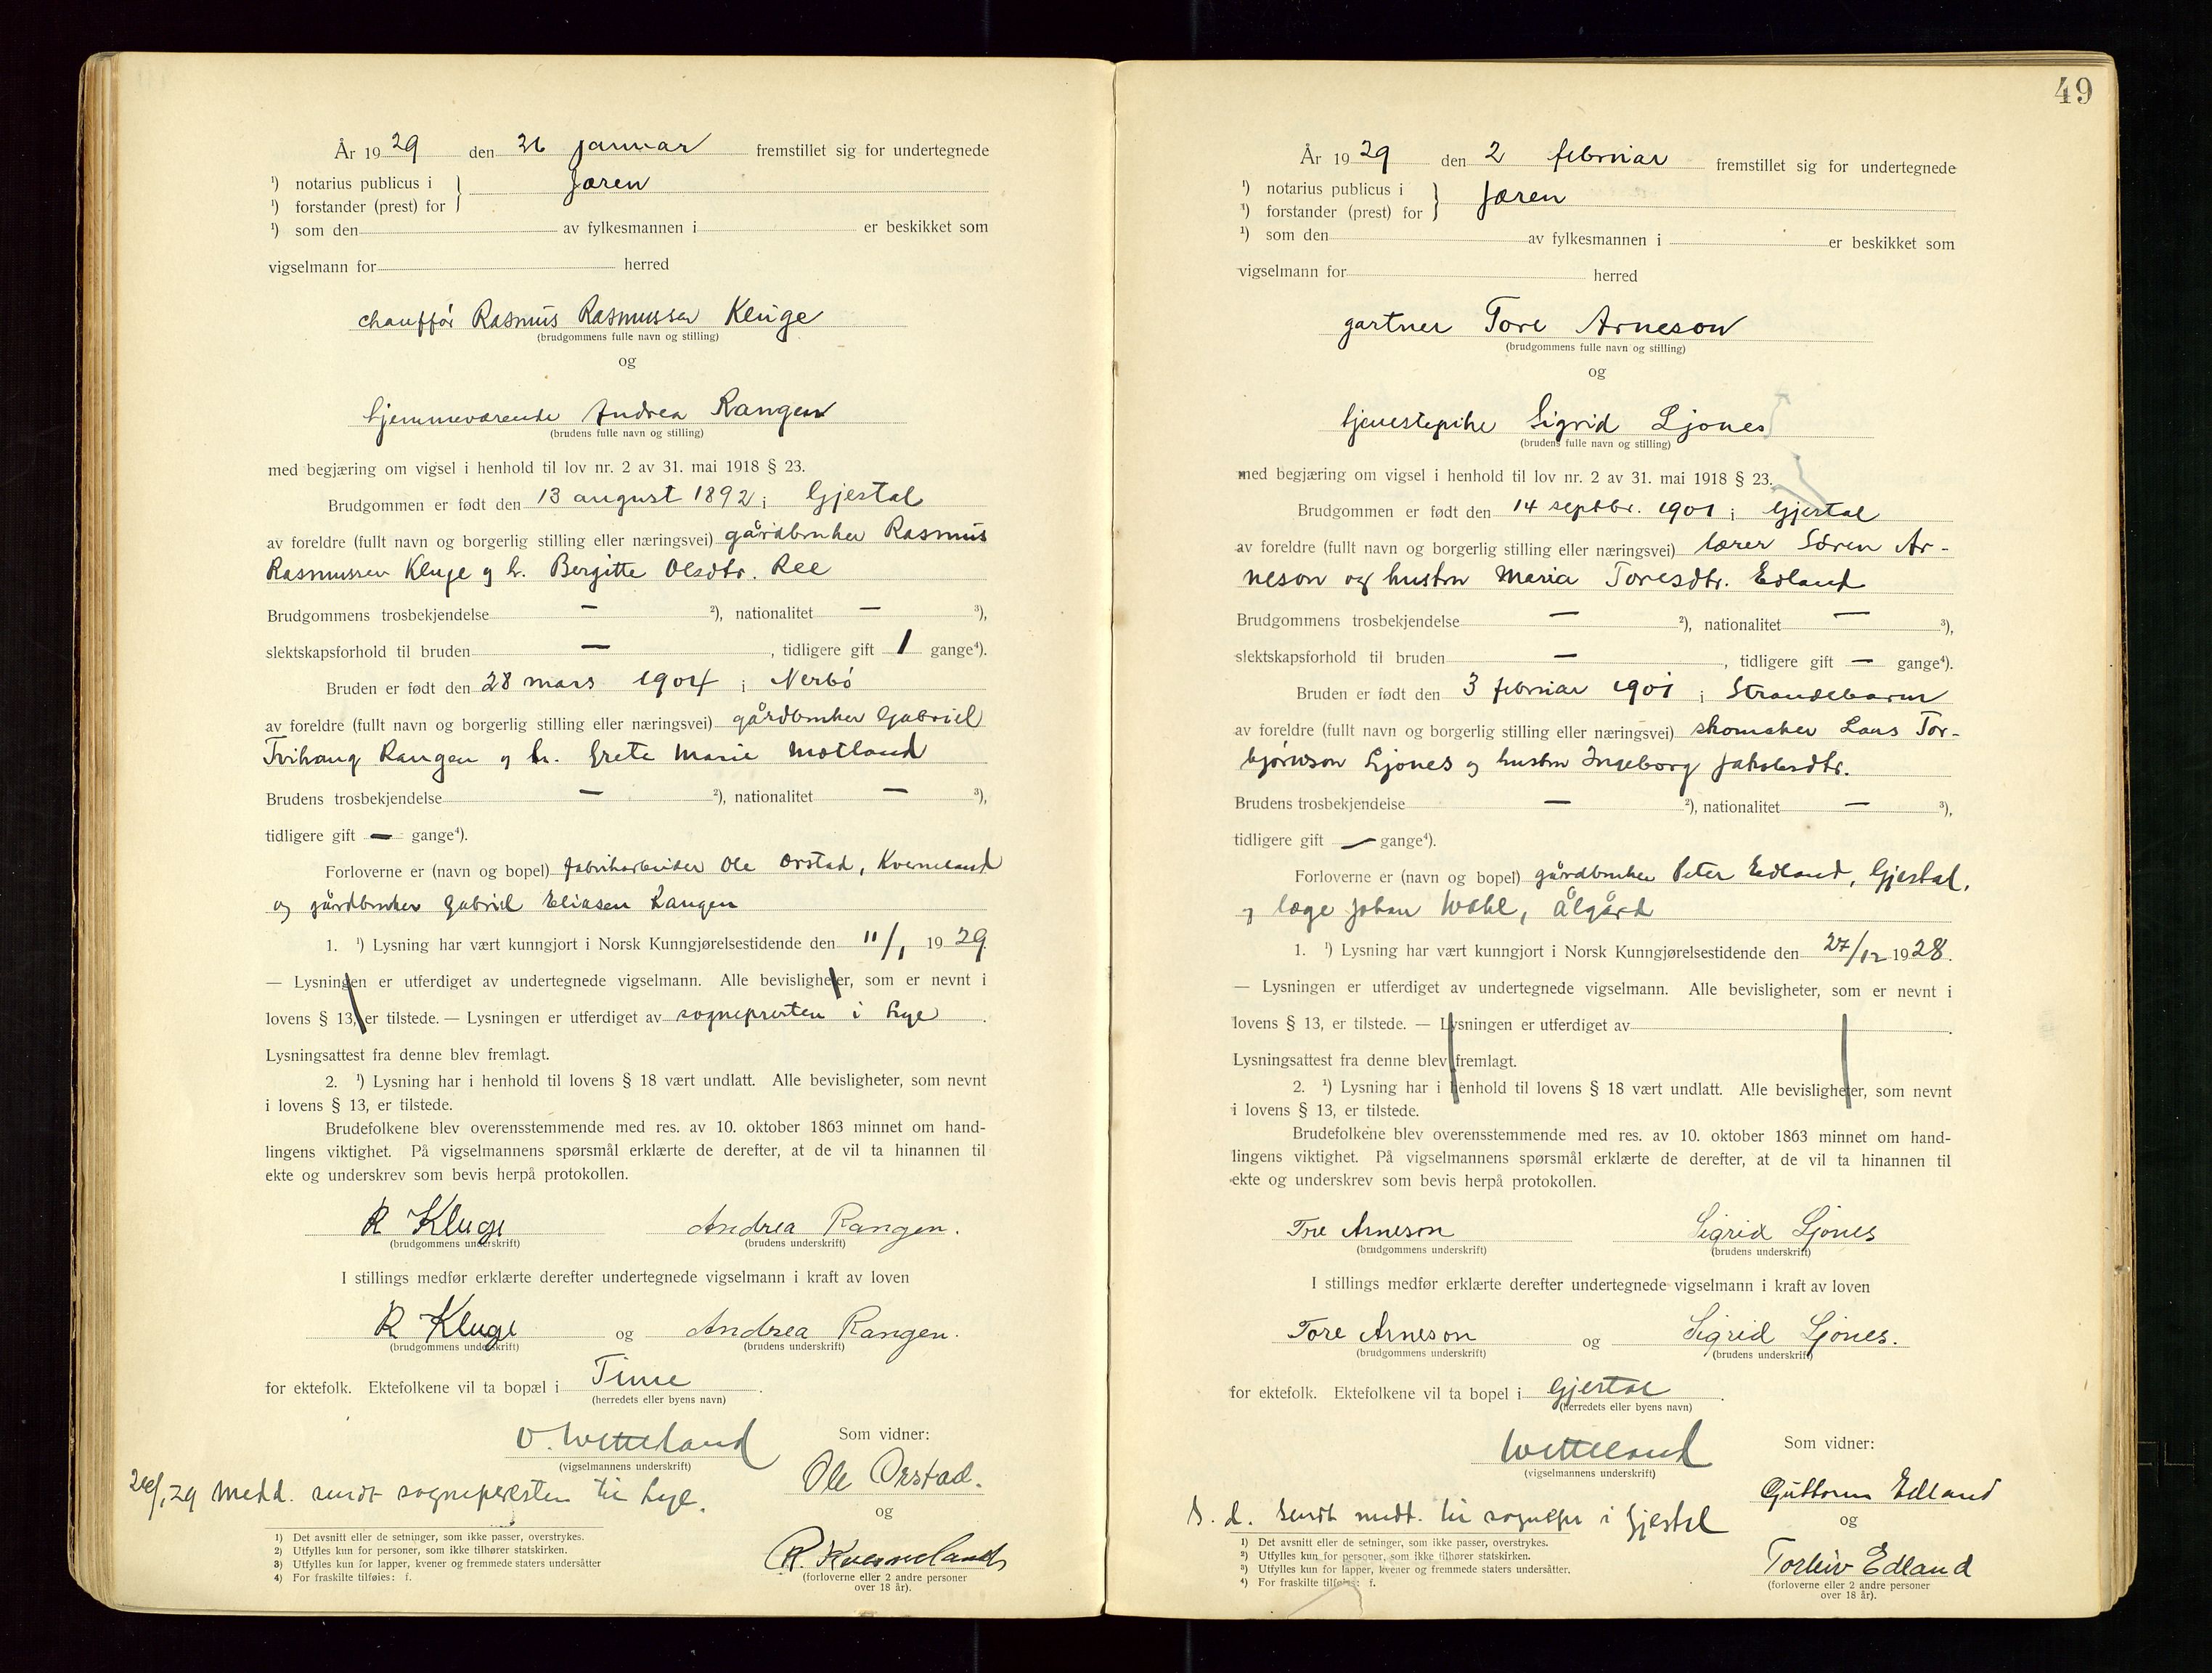 År 1929 den 26 januar fremstillet sig for undertegnede
¹) notarius publicus i } Jæren
¹) forstander (prest) for
¹) som den av fylkesmannen i er beskikket som
vigselmann for herred
chauffør Rasmus Rasmussen Kluge
(brudgommens fulle navn og stilling)
og
hjemmeværende Andrea Rangen
(brudens fulle navn og stilling)
med begjæring om vigsel i henhold til lov nr. 2 av 31. mai 1918 § 23.
Brudgommen er født den 13 august 1892 i Gjestal
av foreldre (fullt navn og borgerlig stilling eller næringsvei) gårdbruker Rasmus
Rasmussen Kluge og h. Bergitte Olsdtr. Ree
Brudgommens trosbekjendelse — ²), nationalitet — ³),
slektskapsforhold til bruden — , tidligere gift 1 gange⁴).
Bruden er født den 28 mars 1904 i Nerbö
av foreldre (fullt navn og borgerlig stilling eller næringsvei) gårdbruker Gabriel
Rangen og h. Grete Marie Motland
Brudens trosbekjendelse — ²), nationalitet — ³),
tidligere gift — gange⁴).
Forloverne er (navn og bopel) fabrikarbeider Ole Orstad, Kverneland
og gårdbruker Gabriel Eliasen Rangen
1. ¹) Lysning har vært kunngjort i Norsk Kunngjørelsestidende den 11/1 1929
— Lysningen er utferdiget av undertegnede vigselmann. Alle bevisligheter, som er nevnt i
lovens § 13, er tilstede. — Lysningen er utferdiget av sognepresten i Lye.
Lysningsattest fra denne blev fremlagt.
2. ¹) Lysning har i henhold til lovens § 18 vært undlatt. Alle bevisligheter, som nevnt
i lovens § 13, er tilstede.
Brudefolkene blev overensstemmende med res. av 10. oktober 1863 minnet om hand-
lingens viktighet. På vigselmannens spørsmål erklærte de derefter, at de vil ta hinannen til
ekte og underskrev som bevis herpå protokollen.
R Kluge Andrea Rangen.
(brudgommens underskrift) (brudens underskrift)
I stillings medfør erklærte derefter undertegnede vigselmann i kraft av loven
R Kluge og Andrea Rangen.
(brudgommens underskrift) (brudens underskrift)
for ektefolk. Ektefolkene vil ta bopæl i Time.
(herredets eller byens navn)
O. Wetteland Som vidner:
(vigselmannens underskrift) Ole Orstad.
29 Medd. sendt sognepresten til Lye.
og
R. Kverneland
(forloverne eller 2 andre personer
over 18 år).
1) Det avsnitt eller de setninger, som ikke passer, overstrykes.
2) Utfylles kun for personer, som ikke tilhører statskirken.
3) Utfylles kun for lapper, kvener og fremmede staters undersåtter
4) For fraskilte tilføies: f.
49
År 1929 den 2 februar fremstillet sig for undertegnede
¹) notarius publicus i } Jæren
³) forstander (prest) for
¹) som den av fylkesmannen i er beskikket som
vigselmann for herred
gartner Tore Arneson
(brudgommens fulle navn og stilling)
og
tjenestepike Sigrid Ljones
(brudens fulle navn og stilling)
med begjæring om vigsel i henhold til lov nr. 2 av 31. mai 1918 § 23.
Brudgommen er født den 14 septbr. 1901 i Gjestal
av foreldre (fullt navn og borgerlig stilling eller næringsvei) lærer Sören Ar-
neson og hustru Maria Toresdtr. Edland
Brudgommens trosbekjendelse — ²), nationalitet — ³),
slektskapsforhold til bruden — , tidligere gift — gange⁴).
Bruden er født den 3 februar 1901 i Strandebarm
av foreldre (fullt navn og borgerlig stilling eller næringsvei) skomaker Lars Tor-
bjørnson Ljones og hustru Ingeborg Jakobsdtr.
Brudens trosbekjendelse — ²), nationalitet — ³),
tidligere gift — gange⁴).
Forloverne er (navn og bopel) gårdbruker Peter Edland, Gjestal,
og læge Johan Wahl, Ålgård
1. ¹) Lysning har vært kunngjort i Norsk Kunngjørelsestidende den 27/12 1928.
— Lysningen er utferdiget av undertegnede vigselmann. Alle bevisligheter, som er nevnt i
lovens § 13, er tilstede. — Lysningen er utferdiget av
Lysningsattest fra denne blev fremlagt.
2. ¹) Lysning har i henhold til lovens § 18 vært undlatt. Alle bevisligheter, som nevnt
i lovens § 13, er tilstede.
Brudefolkene blev overensstemmende med res. av 10. oktober 1863 minnet om hand-
lingens viktighet. På vigselmannens spørsmål erklærte de derefter, at de vil ta hinannen til
ekte og underskrev som bevis herpå protokollen.
Tore Arneson Sigrid Ljones
(brudgommens underskrift) (brudens underskrift)
I stillings medfør erklærte derefter undertegnede vigselmann i kraft av loven
Tore Arneson og Sigrid Ljones.
(brudgommens underskrift) (brudens underskrift)
for ektefolk. Ektefolkene vil ta bopel i Gjestal.
(herredets eller byens navn)
Wetteland Som vidner:
(vigselmannens underskrift)
Guttorm Edland
S. d. sendt medd. til sognepr i Gjestal
og
Torleiv Edland
(forloverne eller 2 andre personer
over 18 år).
¹) Det avsnitt eller de setninger, som ikke passer, overstrykes.
²) Utfylles kun for personer, som ikke tilhører statskirken.
³) Utfylles kun for lapper, kvener og fremmede staters undersåtter.
⁴) For fraskilte tilføies: f.